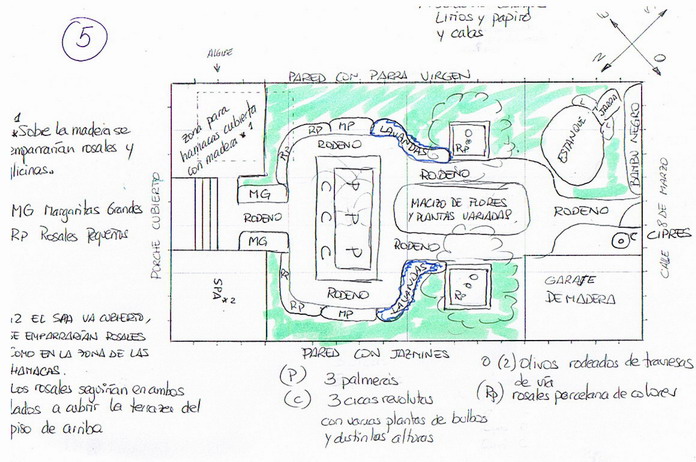 5
Lirios y papiro
y calas
E
N
O
ALJIBE
PARED CON PARRA VIRGEN
*Sobe la madeia se
emparrarian rosales y
MG Margaritas Grandes
RP Rosales Pequeños
PORCHE CUBIERTO
zona para
hamacas cubierta
con madera *1
RP
MP
LAVANDAS
RP
RODENO
MG
RODENO
MG
P P P
C C C
RODENO
RP
RP
MP
LAVANDAS
RP
RODENO
MACIZO DE FLORES
Y PLANTAS VARIADAS
RODENO
RP
L
JARRA
C
ESTANQUE
BAMBÚ NEGRO
RODENO
C
CIPRES
CALLE 8 DE MARZO
GARAJE
DE MADERA
SPA *2
PARED CON JAZMINES
2 EL SPA VA CUBIERTO,
SE EMPARRARÍAN ROSALES
COMO EN LA ZONA DE LAS
HAMACAS.
Los rosales seguirían en ambos
lados a cubrir la terraza del
piso de arriba
(P) 3 palmeras
(C) 3 cicas revolutas
con varias plantas de bulbos
y distintas alturas
O (2) Olivos rodeados de traviesas
de vía
(Rp) rosales porcelana de colores